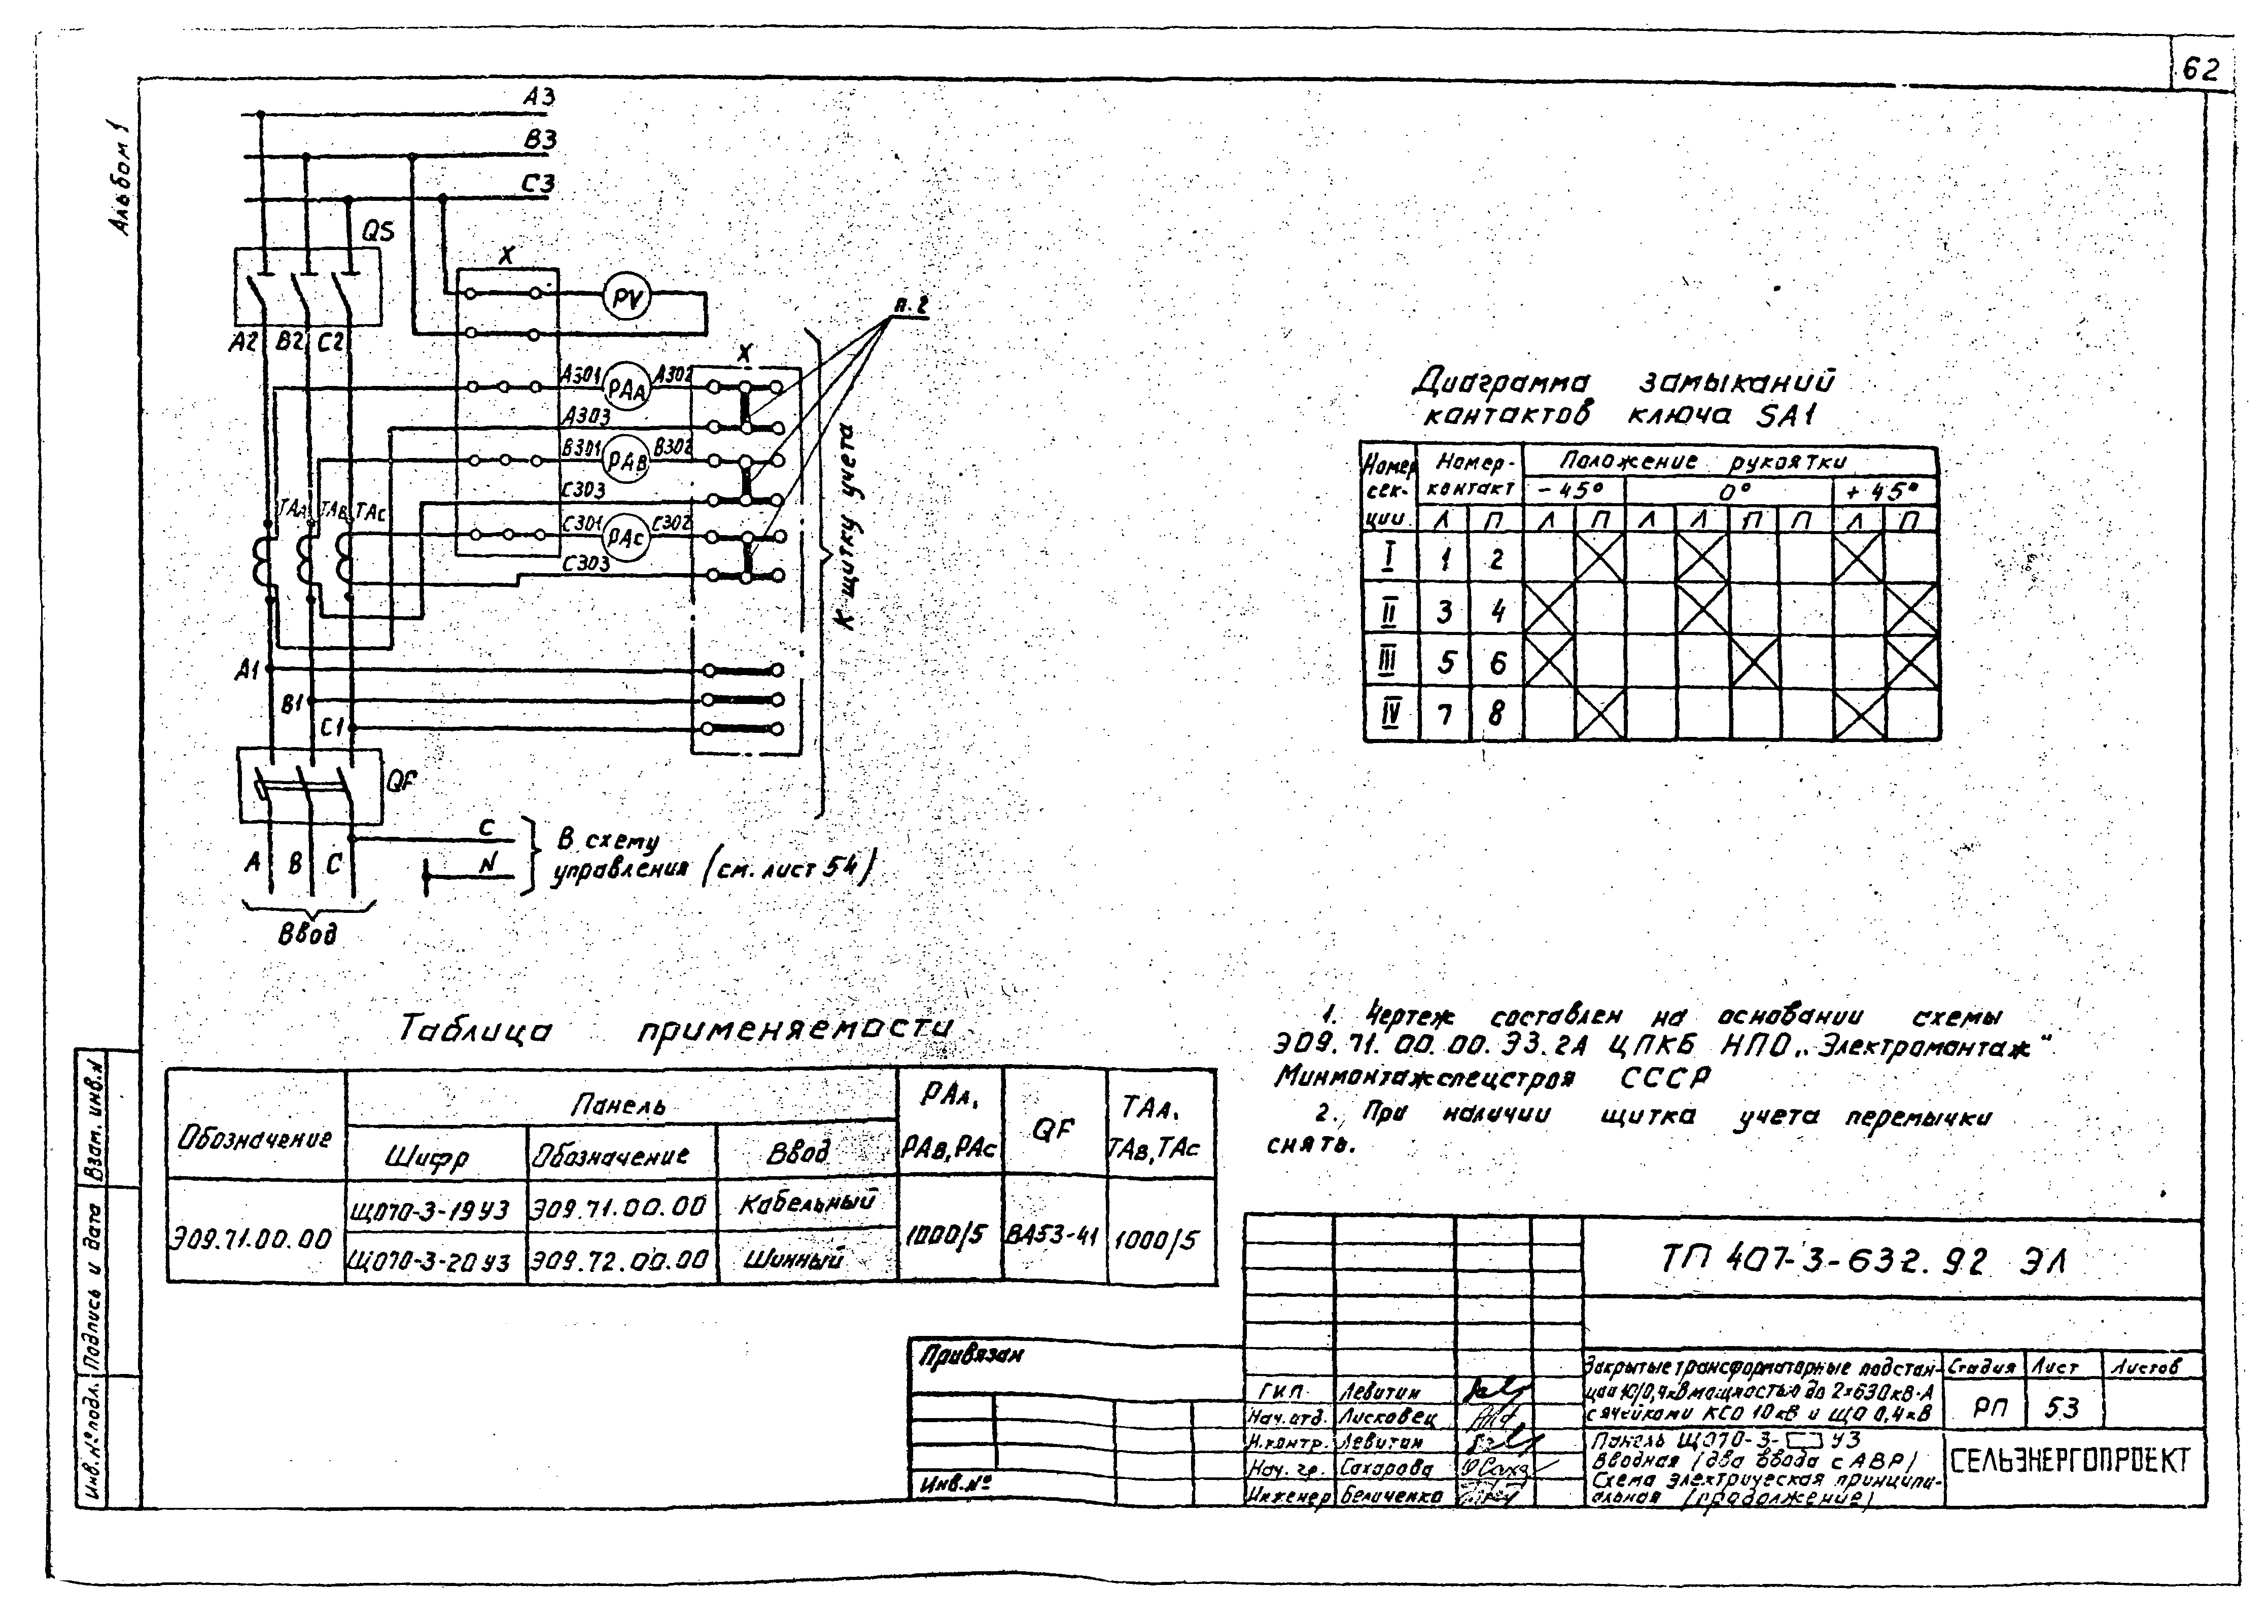 62
Альбом 1
А3
В3
С3
QS
X
PV
п.2
А2 В2 С2
X
А301 РАА А302
А303
В301 РАВ В302
С303
ТАА ТАВ ТАС
С301 РАС С302
С303
К щитку учета
А1
В1
С1
QF
С
N
В схему
управления (см. лист 54)
А В С
Ввод
Диаграмма замыканий
контактов ключа SA1
Номер сек-ции Номер контакт Положение рукоятки
-45° 0° +45°
Л П Л П Л Л П П Л П
I 1 2
II 3 4
III 5 6
IV 7 8
Таблица применяемости
Обозначение Панель РАА, РАВ, РАС QF ТАА, ТАВ, ТАС
Шифр Обозначение Ввод
Э09.71.00.00 ЩО70-3-19У3 Э09.71.00.00 Кабельный 1000/5 ВА53-41 1000/5
ЩО70-3-20У3 Э09.72.00.00 Шинный
1. Чертеж составлен на основании схемы
Э09.71.00.00.Э3.2А ЦПКБ НПО „Электромонтаж"
Минмонтажспецстроя СССР
2. При наличии щитка учета перемычки
снять.
Взам. инв.N
Подпись и дата
Инв.N° подл.
ТП 407-3-632.92 ЭЛ
Привязан
Инв.N°
ГИП Левитин
Нач.отд. Лисковец
Н.контр. Левитин
Нач. гр. Сахарова
Инженер Беличенко
Закрытые трансформаторные подстан-
ции 10/0,4кВ мощностью до 2×630кВ·А
с ячейками КСО 10кВ и ЩО 0,4кВ
Стадия Лист Листов
РП 53
Панель ЩО70-3- У3
Вводная (два ввода с АВР)
Схема электрическая принципи-
альная (продолжение)
СЕЛЬЭНЕРГОПРОЕКТ